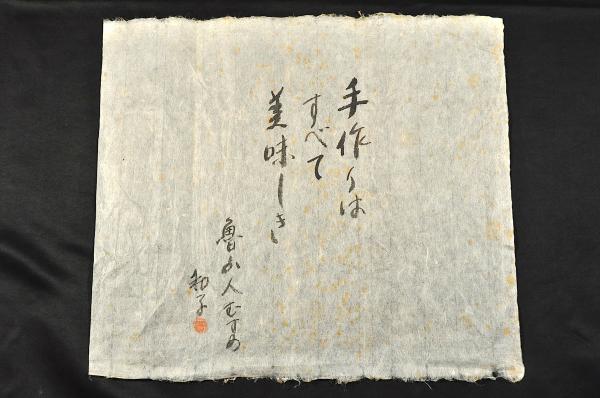 手作りは
すべて
美味しき
魯山人むすめ
和子